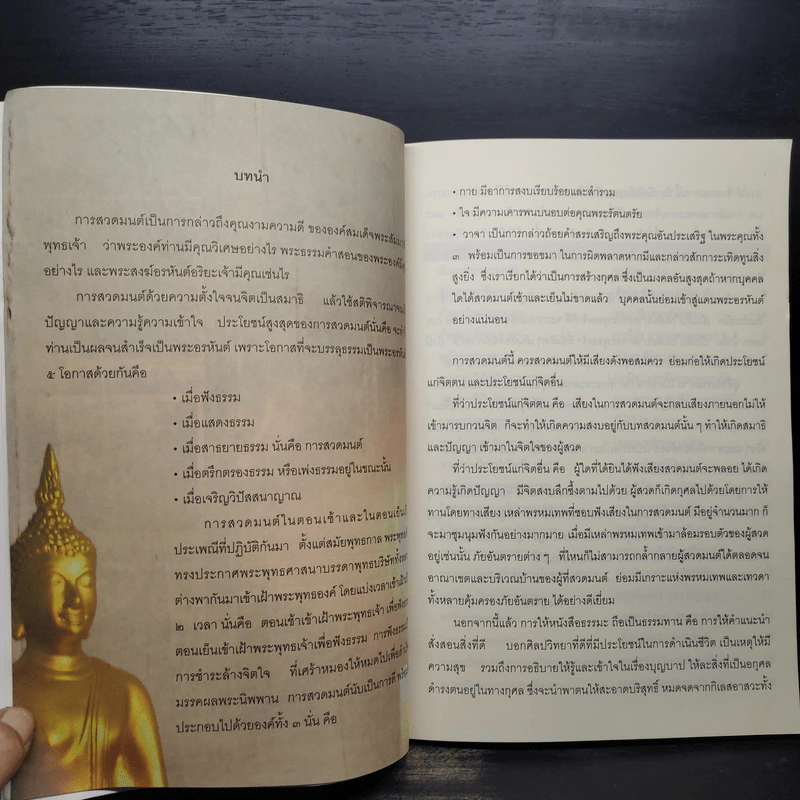 บทนำ
การสวดมนต์เป็นการกล่าวถึงคุณงามความดี ขององค์สมเด็จพระสัมมา
พุทธเจ้า ว่าพระองค์ท่านมีคุณวิเศษอย่างไร พระธรรมคำสอนของพระองค์
อย่างไร และพระสงฆ์อรหันต์อริยะเจ้ามีคุณเช่นไร
การสวดมนต์ด้วยความตั้งใจจนจิตเป็นสมาธิ แล้วใช้สติพิจารณาจน
ปัญญาและความรู้ความเข้าใจ ประโยชน์สูงสุดของการสวดมนต์นั่นคือ
ท่านเป็นผลจนสำเร็จเป็นพระอรหันต์ เพราะโอกาสที่จะบรรลุธรรมเป็นพระอรหันต์
๕ โอกาสด้วยกันคือ
• เมื่อฟังธรรม
• เมื่อแสดงธรรม
• เมื่อสาธยายธรรม นั่นคือ การสวดมนต์
• เมื่อตรึกตรองธรรม หรือเพ่งธรรมอยู่ในขณะนั้น
• เมื่อเจริญวิปัสสนาญาณ
การสวดมนต์ในตอนเช้าและในตอนเย็น
ประเพณีที่ปฏิบัติกันมา ตั้งแต่สมัยพุทธกาล
ทรงประกาศพระพุทธศาสนาบรรดาพุทธบริษัททั้ง
ต่างพากันมาเข้าเฝ้าพระพุทธองค์ โดยแบ่งเวลาเข้าเฝ้า
๒ เวลา นั่นคือ ตอนเช้าเข้าเฝ้าพระพุทธเจ้า
ตอนเย็นเข้าเฝ้าพระพุทธเจ้าเพื่อฟังธรรม การฟังธรรม
การชำระล้างจิตใจ ที่เศร้าหมองให้หมดไปเพื่อ
มรรคผลพระนิพพาน การสวดมนต์นับเป็นการดี
ประกอบไปด้วยองค์ทั้ง ๓ นั่น คือ
• กาย มีอาการสงบเรียบร้อยและสำรวม
• ใจ มีความเคารพนบนอบต่อคุณพระรัตนตรัย
• วาจา เป็นการกล่าวถ้อยคำสรรเสริญถึงพระคุณอันประเสริฐ ในพระคุณทั้ง
๓ พร้อมเป็นการขอขมา ในการผิดพลาดหากมีและกล่าวสักการะเทิดทูนสิ่ง
สูงยิ่ง ซึ่งเราเรียกได้ว่าเป็นการสร้างกุศล ซึ่งเป็นมงคลอันสูงสุดถ้าหากบุคคล
ใดได้สวดมนต์เช้าและเย็นไม่ขาดแล้ว บุคคลนั้นย่อมเข้าสู่แดนพระอรหันต์
อย่างแน่นอน
การสวดมนต์นี้ ควรสวดมนต์ให้มีเสียงดังพอสมควร ย่อมก่อให้เกิดประโยชน์
แก่จิตตน และประโยชน์แก่จิตอื่น
ที่ว่าประโยชน์แก่จิตตน คือ เสียงในการสวดมนต์จะกลบเสียงภายนอกไม่ให้
เข้ามารบกวนจิต ก็จะทำให้เกิดความสงบอยู่กับบทสวดมนต์นั้น ๆ ทำให้เกิดสมาธิ
และปัญญา เข้ามาในจิตใจของผู้สวด
ที่ว่าประโยชน์แก่จิตอื่น คือ ผู้ใดที่ได้ยินได้ฟังเสียงสวดมนต์จะพลอย ได้เกิด
ความรู้เกิดปัญญา มีจิตสงบลึกซึ้งตามไปด้วย ผู้สวดก็เกิดกุศลไปด้วยโดยการให้
ทานโดยทางเสียง เหล่าพรหมเทพที่ชอบฟังเสียงในการสวดมนต์ มีอยู่จำนวนมาก ก็
จะมาชุมนุมฟังกันอย่างมากมาย เมื่อมีเหล่าพรหมเทพเข้ามาล้อมรอบตัวของผู้สวด
อยู่เช่นนั้น ภัยอันตรายต่าง ๆ ที่ไหนก็ไม่สามารถกล้ำกลายผู้สวดมนต์ได้ตลอดจน
อาณาเขตและบริเวณบ้านของผู้ที่สวดมนต์ ย่อมมีเกราะแห่งพรหมเทพและเทวดา
ทั้งหลายคุ้มครองภัยอันตราย ได้อย่างดีเยี่ยม
นอกจากนี้แล้ว การให้หนังสือธรรมะ ถือเป็นธรรมทาน คือ การให้คำแนะนำ
สั่งสอนสิ่งที่ดี บอกศิลปวิทยาที่ดีที่มีประโยชน์ในการดำเนินชีวิต เป็นเหตุให้มี
ความสุข รวมถึงการอธิบายให้รู้และเข้าใจในเรื่องบุญบาป ให้ละสิ่งที่เป็นอกุศล
ดำรงตนอยู่ในทางกุศล ซึ่งจะนำพาตนให้สะอาดบริสุทธิ์ หมดจดจากกิเลสอาสวะทั้ง